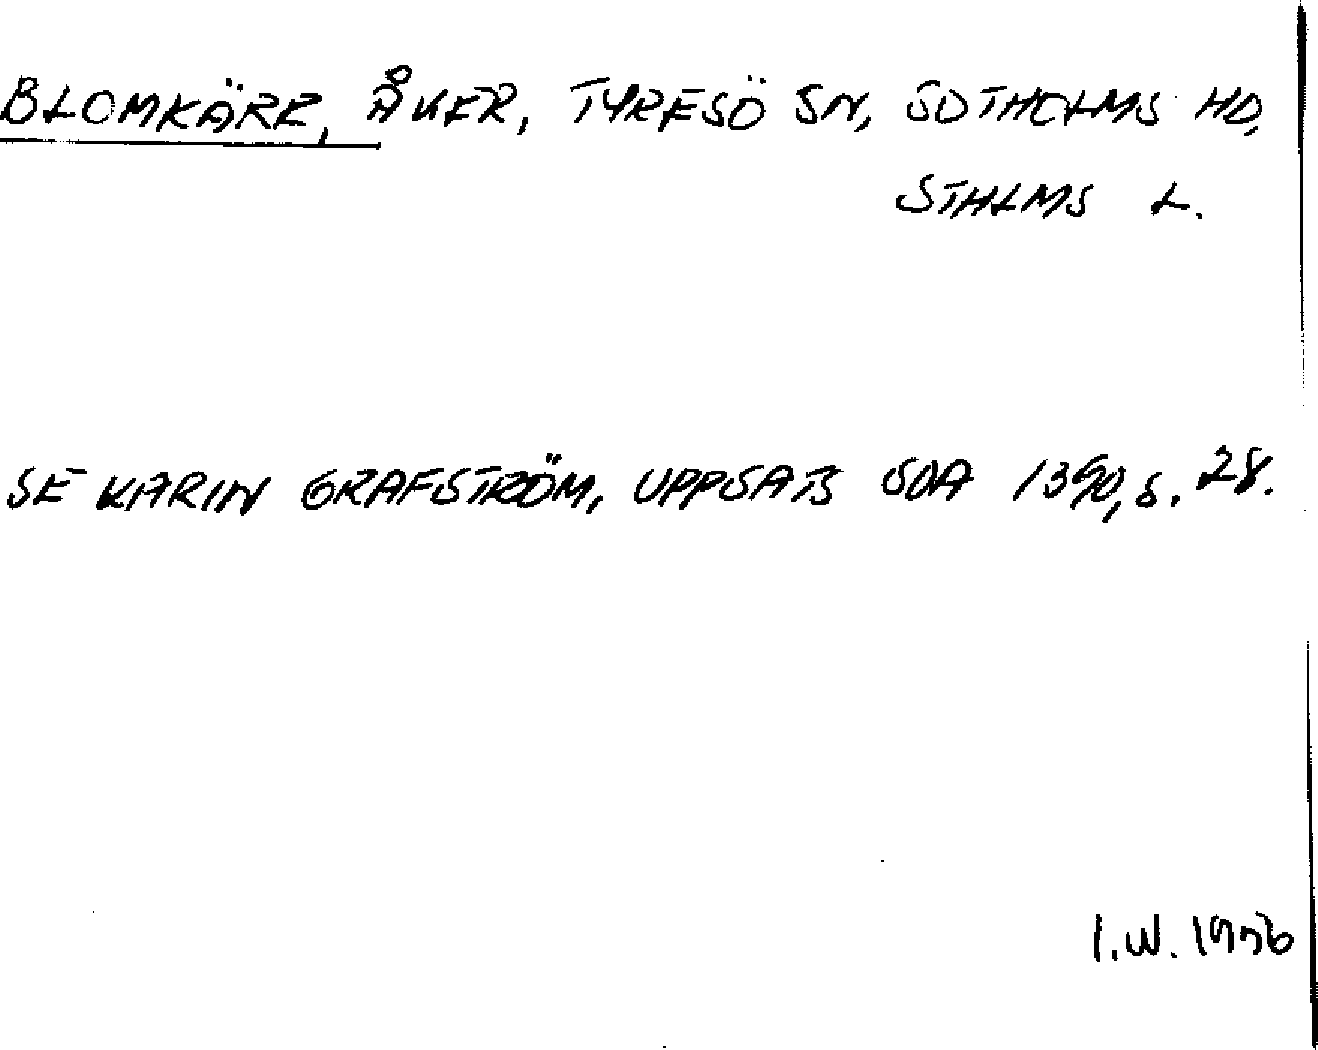 BLOMKÄRR, ÅKER, TYRESÖ SN, SOTHOLMS HD,
STHLMS L.
SE KARIN GRAFSTRÖM, UPPSATS SOA 1390, s. 28.
I.W. 1976